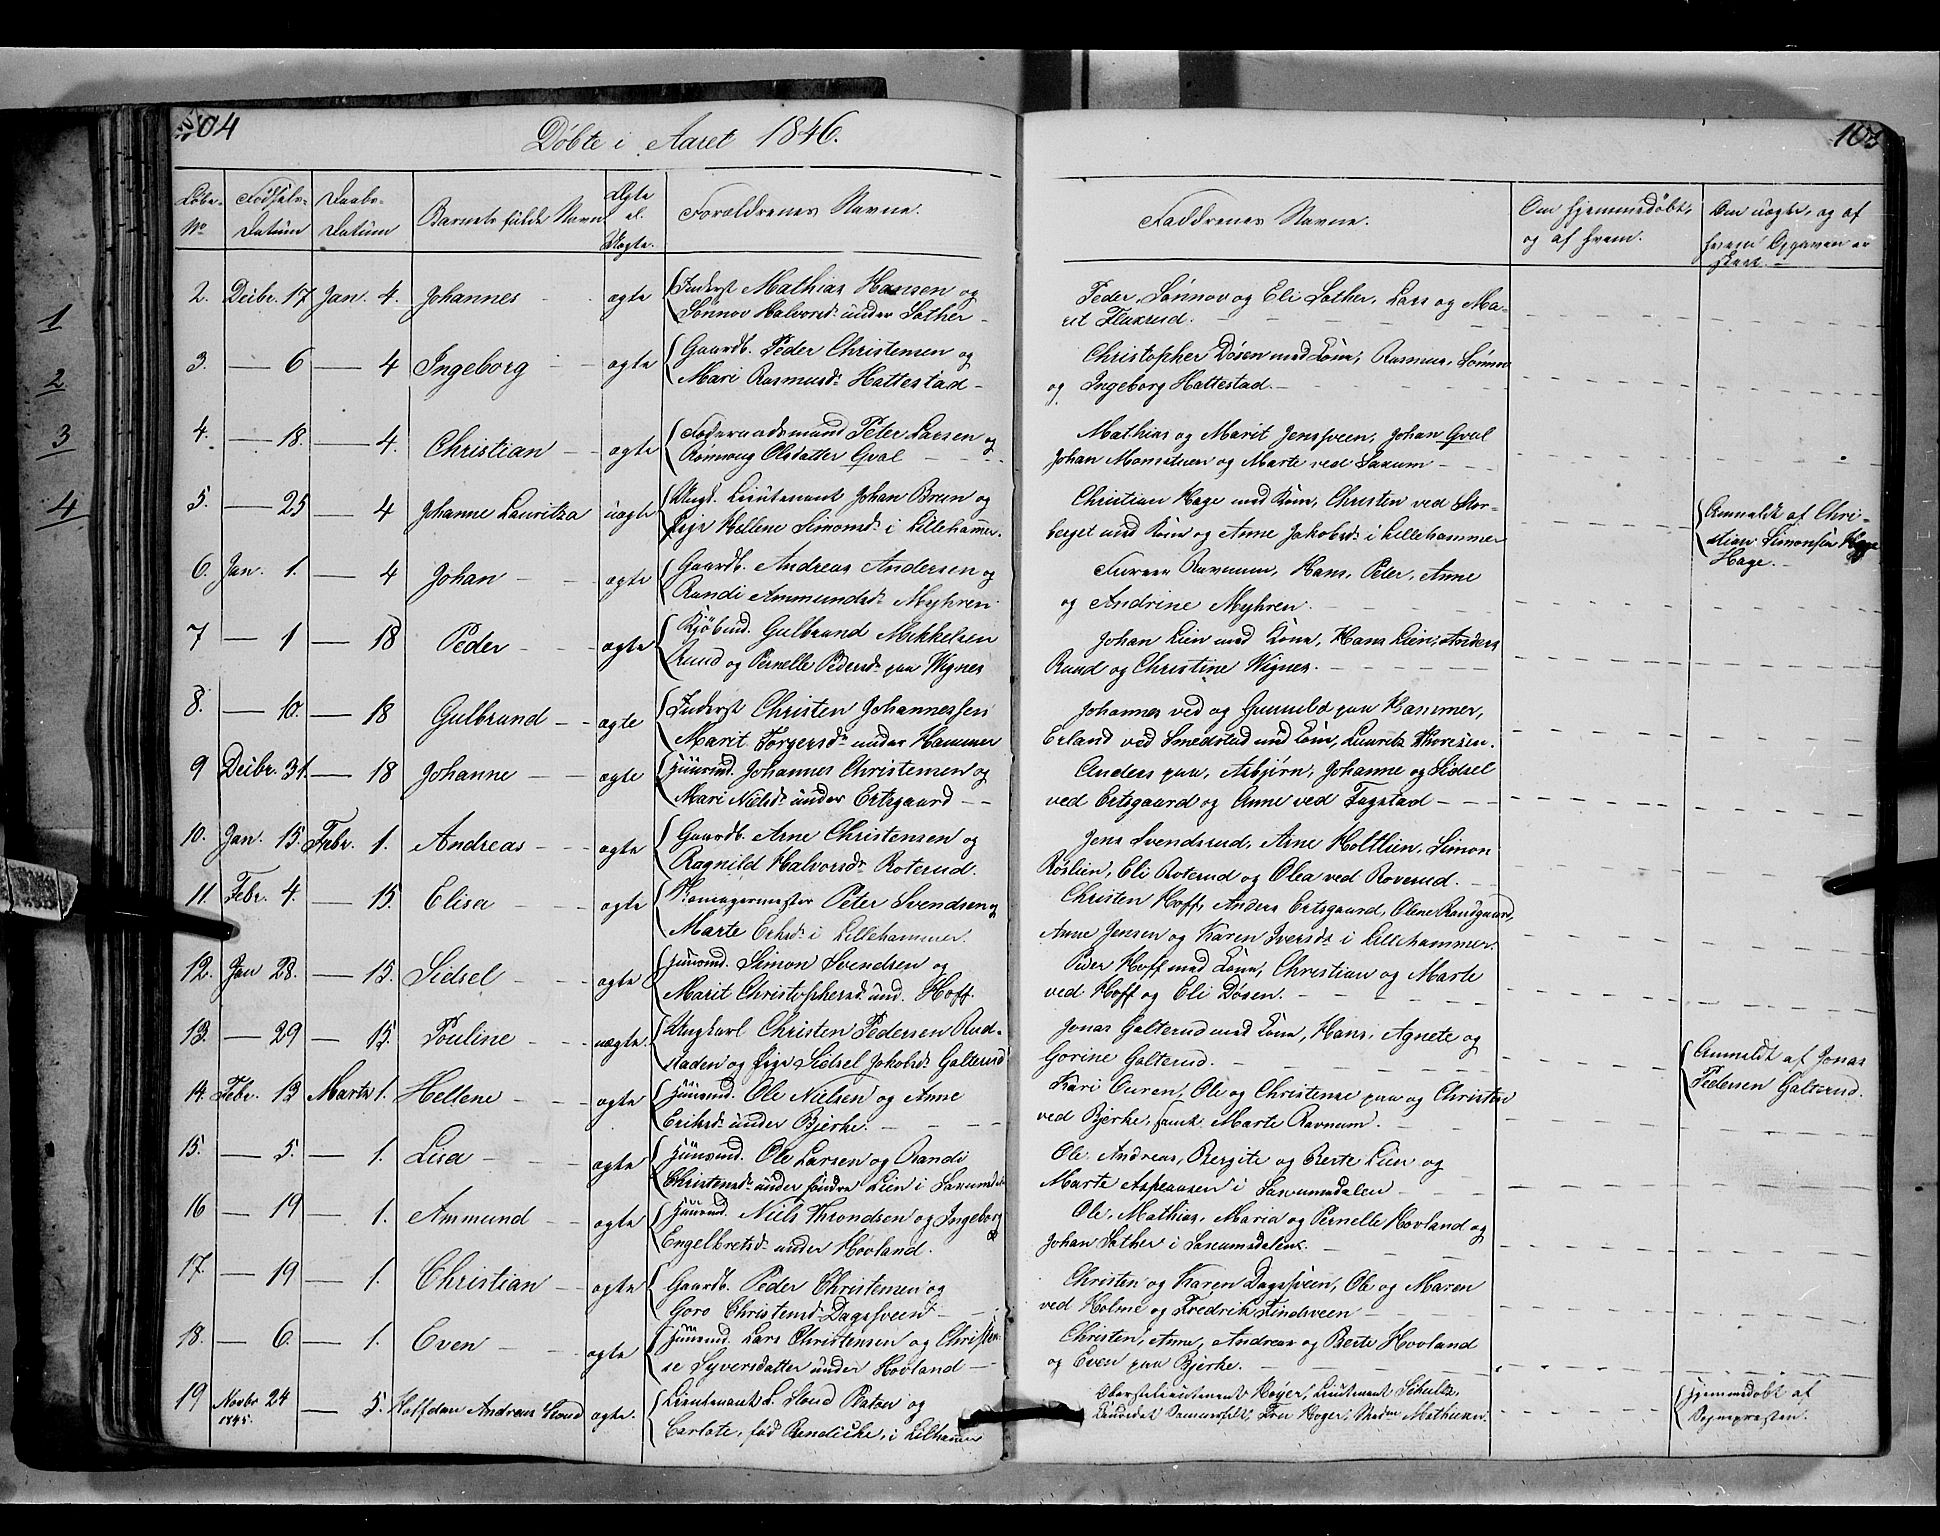 204
Döbte i Aaret 1846.
103
Löbe-No
Födsels-Datum
Daabs-Datum
Barnets fulde Navn
Ægte el. Uægte.
Forældrenes Navne.
Faddrenes Navne.
Om hjemmedöbt, og af hvem.
Om uægte, og af hvem Opgaven er skeet.
1
2
3
4
2. Decbr. 17 Jan. 4. Johannes ægte Inderst Mathias Hansen og
Sönnov Halvorsdr under Sother
Peder, Sönnov og Eli Sother, Lars og Ma-
rit Flaxrud.
3. — 6 — 4 Ingeborg ægte Gaardb. Peder Christensen og
Mari Rasmusdr Hattestad
Christopher Dösen med Kone, Rasmus, Sönnov
og Ingeborg Hattestad.
4. — 18. — 4. Christian ægte Föderaadsmand Peter Larsen og
Rönnoug Olsdatter Hval
Mathias og Marit Jenssveen, Johan Hval
Johan Monstuen og Marte ved Saxum
5. — 25 — 4 Johanne Lauritza uægte Ungk. Lieutenant Johan Brun og
Pige Hellene Simonsdr i Lillehamer.
Christian Hage med Kone, Christen ved Stor-
berget med Kone og Anne Jakobsdr i Lillehammer
Anmeldt af Chri-
stian Simonsen
Hage.
6. Jan. 1. — 4 Johan ægte Gaardb. Andreas Andersen og
Randi Ammundsdr Myhren
Ravnum, Hans, Peter, Anne
og Andrine Myhren.
7 — 1 — 18 Peder ægte Kjöbmd. Gulbrand Mikkelsen
Ruud og Pernelle Pedersdr paa Vignes
Johan Lien med Kone, Hans Lien, Anders
Ruud og Christine Vignes.
8. — 10. — 18 Gulbrand ægte Inderst Christen Johannessen
Marit Torgersdr under Hammer
Johannes ved og Gunnild paa Hammer,
Erland ved Smedstad med Kone, Lauritz Thoresen.
9 Decbr. 31. — 18 Johanne ægte Huusmd. Johannes Christensen og
Mari Nielsdr under Ertsgaard
Anders paa, Asbjörn, Johanne og Sidsel
ved Ertsgaard og Anne ved Fagstad
10. Jan. 15. Febr. 1. Andreas ægte Gaardb. Arne Christensen og
Ragnild Halvorsdr Roterud.
Jens Svendsrud, Arne Holtlien, Simon
Röslien, Eli Roterud og Olea ved Roverud.
11. Febr. 4. — 15. Elisa ægte Peter Svendsen og
Marte Eriksdr i Lillehammer.
Christen Hoff, Anders Ertsgaard, Olene Randgaard,
Anne Jensen og Karen Iversdr i Lillehammer.
12. Jan 28. — 15. Sidsel ægte Huusmd. Simon Svendsen og
Marit Christophersdr und. Hoff.
Peder Hoff med Kone, Christian og Marte
ved Hoff og Eli Dösen.
13. — 29 — 15. Pouline uægte Ungkarl Christen Pedersen Rud-
staden og Pige Sidsel Jakobsdr Galterud
Jonas Galterud med Kone, Hans, Agnete og
Gorine Galterud.
Anmeldt af Jonas
Pedersen Galterud.
14. Febr. 13 Marts 1. Hellene ægte Huusmd. Ole Nielsen og Anne
Eriksdr under Bjerke.
Kari Ouren, Ole og Christense paa og Christen
ved Bjerke, samt Marte Ravnum.
15. — 5. — 1. Lisa ægte Huusmd. Ole Larsen og Randi
Christensdr under söndre Lien i Saxumsd.
Ole Andreas, Bergite og Berte Lien og
Marte Aspeaasen i Saxumsdalen
16 — 19 — 1. Ammund ægte Huusmd. Niels Throndsen og Ingeborg
Engelbretsdr under Hovland.
Ole, Mathias, Maria og Pernelle Hovland og
Johan Sother i Saxumsdalen.
17. — 19 — 1. Christian ægte Gaardb. Peder Christensen og
Goro Christensdr Dagssveen
Christen og Karen Dagssveen, Ole og Maren
ved Holme og Fredrik Lindsveen
18. — 6. — 1. Even ægte Huusmd. Lars Christensen og Christen-
se Syversdatter under Hovland
Christen, Anne, Andreas og Berte Hovland
og Even paa Bjerke.
19 Novbr 24
1845. — 5. Halfdan Andreas Stoud ægte. Lieutenant L. Stoud Platou og
Carlote, föd Bendicke, i Lilhamer
Oberstlieutenant Höyer, Lieutenant Schultz,
Sommerfelt, Fru Höyer, Madm Mathiesen.
Hjemmedöbt af
Sognepræsten.